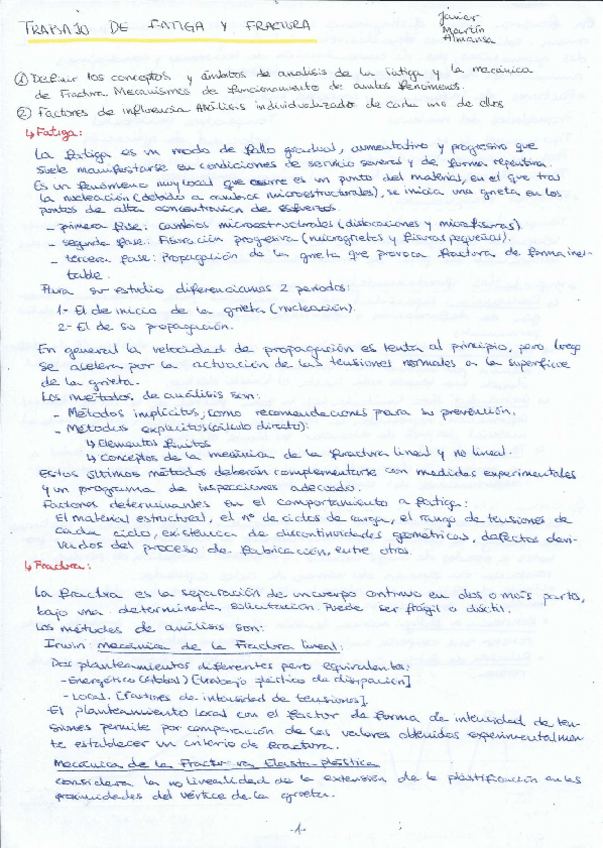 TRABAJO DE FATIGA Y FRACTURA
Javier
Martín
Almansa
① Definir los conceptos y ámbitos de analisis de la Fatiga y la mecánica
de Fractura. Mecanismos de funcionamiento de ambos fenómenos.
② Factores de influencia Análisis individualizado de cada uno de ellos
↳ Fatiga:
La fatiga es un modo de fallo gradual, aumentativo y progresivo que
suele manifestarse en condiciones de servicio severas y de forma repentina.
Es un fenómeno muy local que ocurre es un punto del material, en el que tras
la nucleación (debido a cambios microestructurales), se inicia una grieta en los
puntos de alta concentración de esfuerzos.
- primera fase: cambios microestructurales (dislocaciones y microfisuras).
- segunda fase: Fisuración progresiva (microgrietas y fisuras pequeñas).
- tercera fase: Propagación de la grieta que provoca fractura de forma inevi-
table.
Para su estudio diferenciamos 2 periodos:
1- El de inicio de la grieta (nucleación).
2- El de su propagación.
En general la velocidad de propagación es lenta al principio, pero luego
se acelera por la actuación de las tensiones normales a la superficie
de la grieta.
Los métodos de análisis son:
- Métodos implícitos, como recomendaciones para su prevención.
- Métodos explícitos (cálculo directo):
↳ Elementos finitos
↳ Conceptos de la mecánica de la fractura lineal y no lineal.
Estos últimos métodos deberán complementarse con medidas experimentales
y un programa de inspecciones adecuado.
Factores determinantes en el comportamiento a fatiga:
El material estructural, el nº de ciclos de carga, el rango de tensiones de
cada ciclo, existencia de discontinuidades geométricas, defectos deri-
vados del proceso de fabricación, entre otros.
↳ Fractura:
La fractura es la separación de un cuerpo continuo en dos o más partes,
bajo una determinada solicitación. Puede ser frágil o dúctil.
Los métodos de análisis son:
Irwin: mecánica de la Fractura lineal:
Dos planteamientos diferentes pero equivalentes:
- Energético (Global) [trabajo plástico de disipación]
- Local. [Factores de intensidad de tensiones].
- El planteamiento local con el factor de forma de intensidad de ten-
siones permite por comparación de los valores obtenidos experimentalmen-
te establecer un criterio de fractura.
Mecánica de la Fractura Elasto-plástica
Considera la no linealidad de la extensión de la plastificación en las
proximidades del vértice de la grieta.
-1-